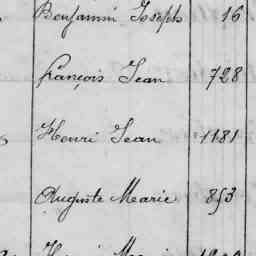 Benjamin Joseph 16
François Jean 728
Henri Jean 1181
Auguste Marie 853